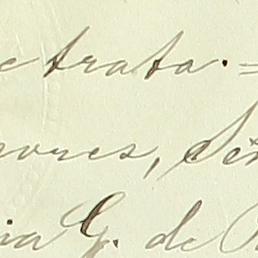 trata.=
ores, Se
ia G. de